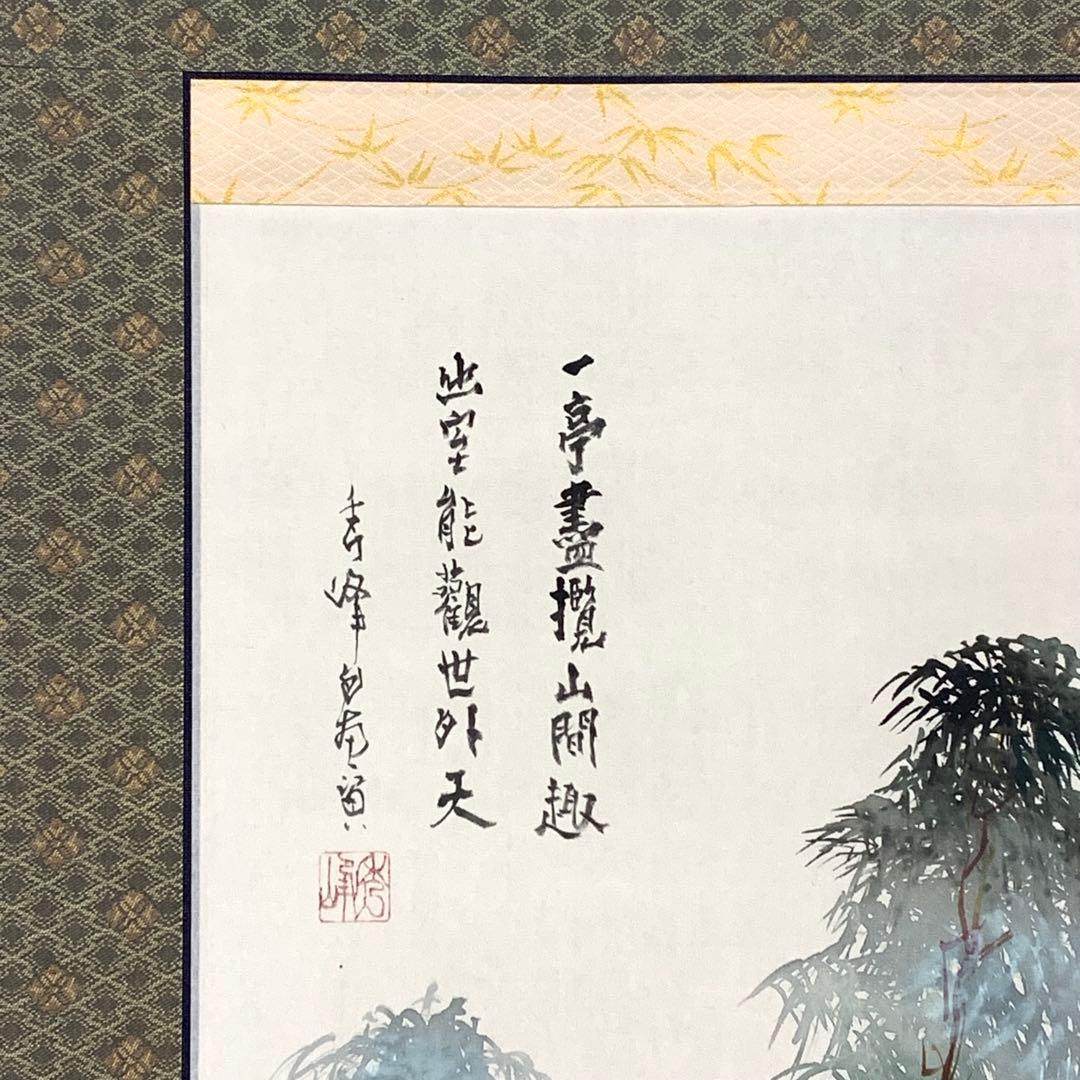 一亭盡攬山間趣
幽室能觀世外天
秀峰自畫賛
秀峰